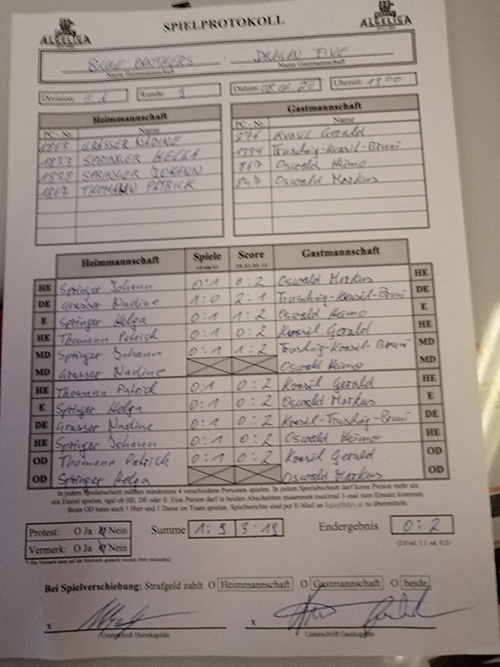 ALGELIGA SPIELPROTOKOLL ALGELIGA
BLUE PANTHERS DRAGAN FIVE
Name Heimmannschaft Name Gastmannschaft
Division: Runde: 9 Datum: Uhrzeit:
Heimmannschaft Gastmannschaft
PC - Nr. Name PC - Nr. Name
GRESSER NADINE 276 Kossil Gerald
1833 SPRINGER HELGA 1384 Truschnig-Kossil-Bruni
1838 SPRINGER JOHANN 867 Oswald Heimo
1867 THOMANN PATRICK 847 Oswald Markus
Heimmannschaft Spiele Score Gastmannschaft
HE Springer Johann 0:1 0:2 Oswald Markus HE
DE Gresser Nadine 1:0 2:1 Truschnig-Kossil-Bruni DE
E Springer Helga 0:1 1:2 Oswald Heimo E
HE Thomann Patrick 0:1 0:2 Kossil Gerald HE
MD Springer Johann 0:1 1:2 Truschnig-Kossil-Bruni MD
MD Gresser Nadine Oswald Heimo MD
HE Thomann Patrick 0:1 0:2 Kossil Gerald HE
E Springer Helga 0:1 0:2 Oswald Markus E
DE Gresser Nadine 0:1 0:2 Kossil-Truschnig-Bruni DE
HE Springer Johann 0:1 0:2 Oswald Heimo HE
OD Thomann Patrick 0:1 0:2 Kossil Gerald OD
OD Springer Helga Oswald Markus OD
In jedem Spielabschnitt müssen mindestens 4 verschiedene Personen spielen. In jedem Spielabschnitt darf keine Person mehr als
ein Einzel spielen, egal ob HE, DE oder E. Eine Person darf in beiden Abschnitten zusammen maximal 3-mal zum Einsatz kommen.
Beim OD kann auch 1 Herr und 1 Dame im Team spielen. Spielberichte sind per E-Mail an zu übermitteln.
Protest: O Ja O Nein Summe 1:9 3:19 Endergebnis 0:2
Vermerk: O Ja O Nein (2:0 od. 1:1 od. 0:2)
Bei Spielverschiebung: Strafgeld zahlt O Heimmannschaft O Gastmannschaft O beide
x x
Unterschrift Heimkapitän Unterschrift Gastkapitän